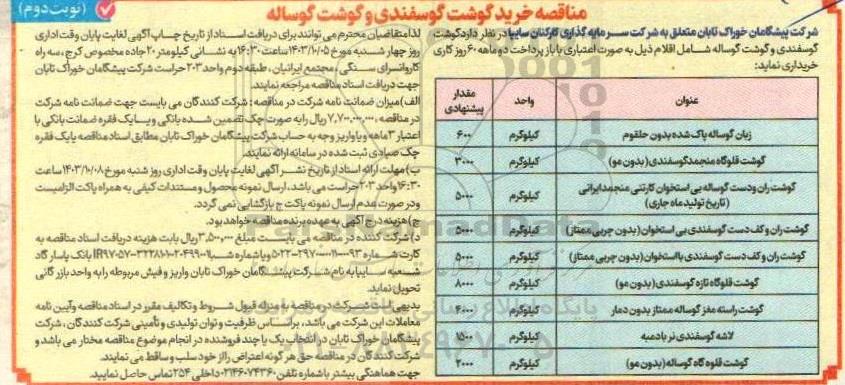 مناقصه خرید گوشت گوسفندی و گوشت گوساله
(نوبت دوم)
شرکت پیشگامان خوراک تابان متعلق به شرکت سرمایه گذاری کارکنان سایپا در نظر دارد گوشت
گوسفندی و گوشت گوساله شامل اقلام ذیل به صورت اعتباری با باز پرداخت دو ماهه ۶۰ روز کاری
خریداری نماید:
عنوان واحد مقدار پیشنهادی
زبان گوساله پاک شده بدون حلقوم کیلوگرم ۶۰۰
گوشت قلوگاه منجمد گوسفندی (بدون مو) کیلوگرم ۳۰۰۰
گوشت ران ودست گوساله بی استخوان کارتنی منجمد ایرانی
(تاریخ تولید ماه جاری) کیلوگرم ۵۰۰۰
گوشت ران و کف دست گوسفندی بی استخوان (بدون چربی ممتاز) کیلوگرم ۵۰۰۰
گوشت ران و کف دست گوسفندی بااستخوان (بدون چربی ممتاز) کیلوگرم ۵۰۰۰
گوشت قلوگاه تازه گوسفندی (بدون مو) کیلوگرم ۸۰۰۰
گوشت راسته مغز گوساله ممتاز بدون دمار کیلوگرم ۴۰۰۰
لاشه گوسفندی نر با دمبه کیلوگرم ۱۵۰۰
گوشت قلوه گاه گوساله (بدون مو) کیلوگرم ۲۰۰۰
لذا متقاضیان محترم می توانند برای دریافت اسناد از تاریخ چاپ آگهی لغایت پایان وقت اداری
روز چهار شنبه مورخ ۱۴۰۳/۱۰/۰۵ ساعت ۱۶:۳۰ به نشانی کیلومتر ۲۰ جاده مخصوص کرج، سه راه
کاروانسرای سنگی، مجتمع ایرانیان، طبقه دوم واحد ۲۰۳ حراست شرکت پیشگامان خوراک تابان
جهت دریافت اسناد مناقصه مراجعه نمایند.
الف) میزان ضمانت نامه شرکت در مناقصه: شرکت کنندگان می بایست جهت ضمانت نامه شرکت
در مناقصه، ۷,۷۰۰,۰۰۰,۰۰۰ ریال را به صورت چک تضمین شده بانکی و یا یک فقره ضمانت بانکی با
اعتبار ۳ ماهه و یا واریز وجه به حساب شرکت پیشگامان خوراک تابان مطابق اسناد مناقصه یا یک فقره
چک صیادی ثبت شده در سامانه ارائه نمایند.
ب) مهلت ارائه اسناد از تاریخ نشر آگهی لغایت پایان وقت اداری روز شنبه مورخ ۱۴۰۳/۱۰/۰۸ ساعت
۱۶:۳۰ واحد ۲۰۳ حراست می باشد. ارسال نمونه محصول و مستندات کیفی به همراه پاکت الزامیست
و در صورت عدم ارسال نمونه پاکت ج بازگشایی نمی گردد.
ج) هزینه درج آگهی به عهده برنده مناقصه خواهد بود.
د) شرکت کننده در مناقصه می بایست مبلغ ۳,۵۰۰,۰۰۰ ریال بابت هزینه دریافت اسناد مناقصه به
کارت شماره ویا شماره شبا بانک پاسارگاد
شعبه سایپا به نام شرکت پیشگامان خوراک تابان واریز و فیش مربوطه را به واحد بازرگانی
تحویل نماید.
بدیهی است شرکت در مناقصه به منزله قبول شروط و تکالیف مقرر در اسناد مناقصه و آیین نامه
معاملات این شرکت می باشد، براساس ظرفیت و توان تولیدی و تأمینی شرکت کنندگان، شرکت
پیشگامان خوراک تابان در انتخاب یک یا چند فروشنده در انجام موضوع مناقصه مختار می باشد و
شرکت کنندگان در مناقصه حق هرگونه اعتراض را از خود سلب و ساقط می نمایند.
جهت هماهنگی بیشتر با شماره تلفن ۰۲۱۴۶۰۷۴۳۶۰ داخلی ۲۵۴ تماس حاصل نمایید.
ParsNamadData